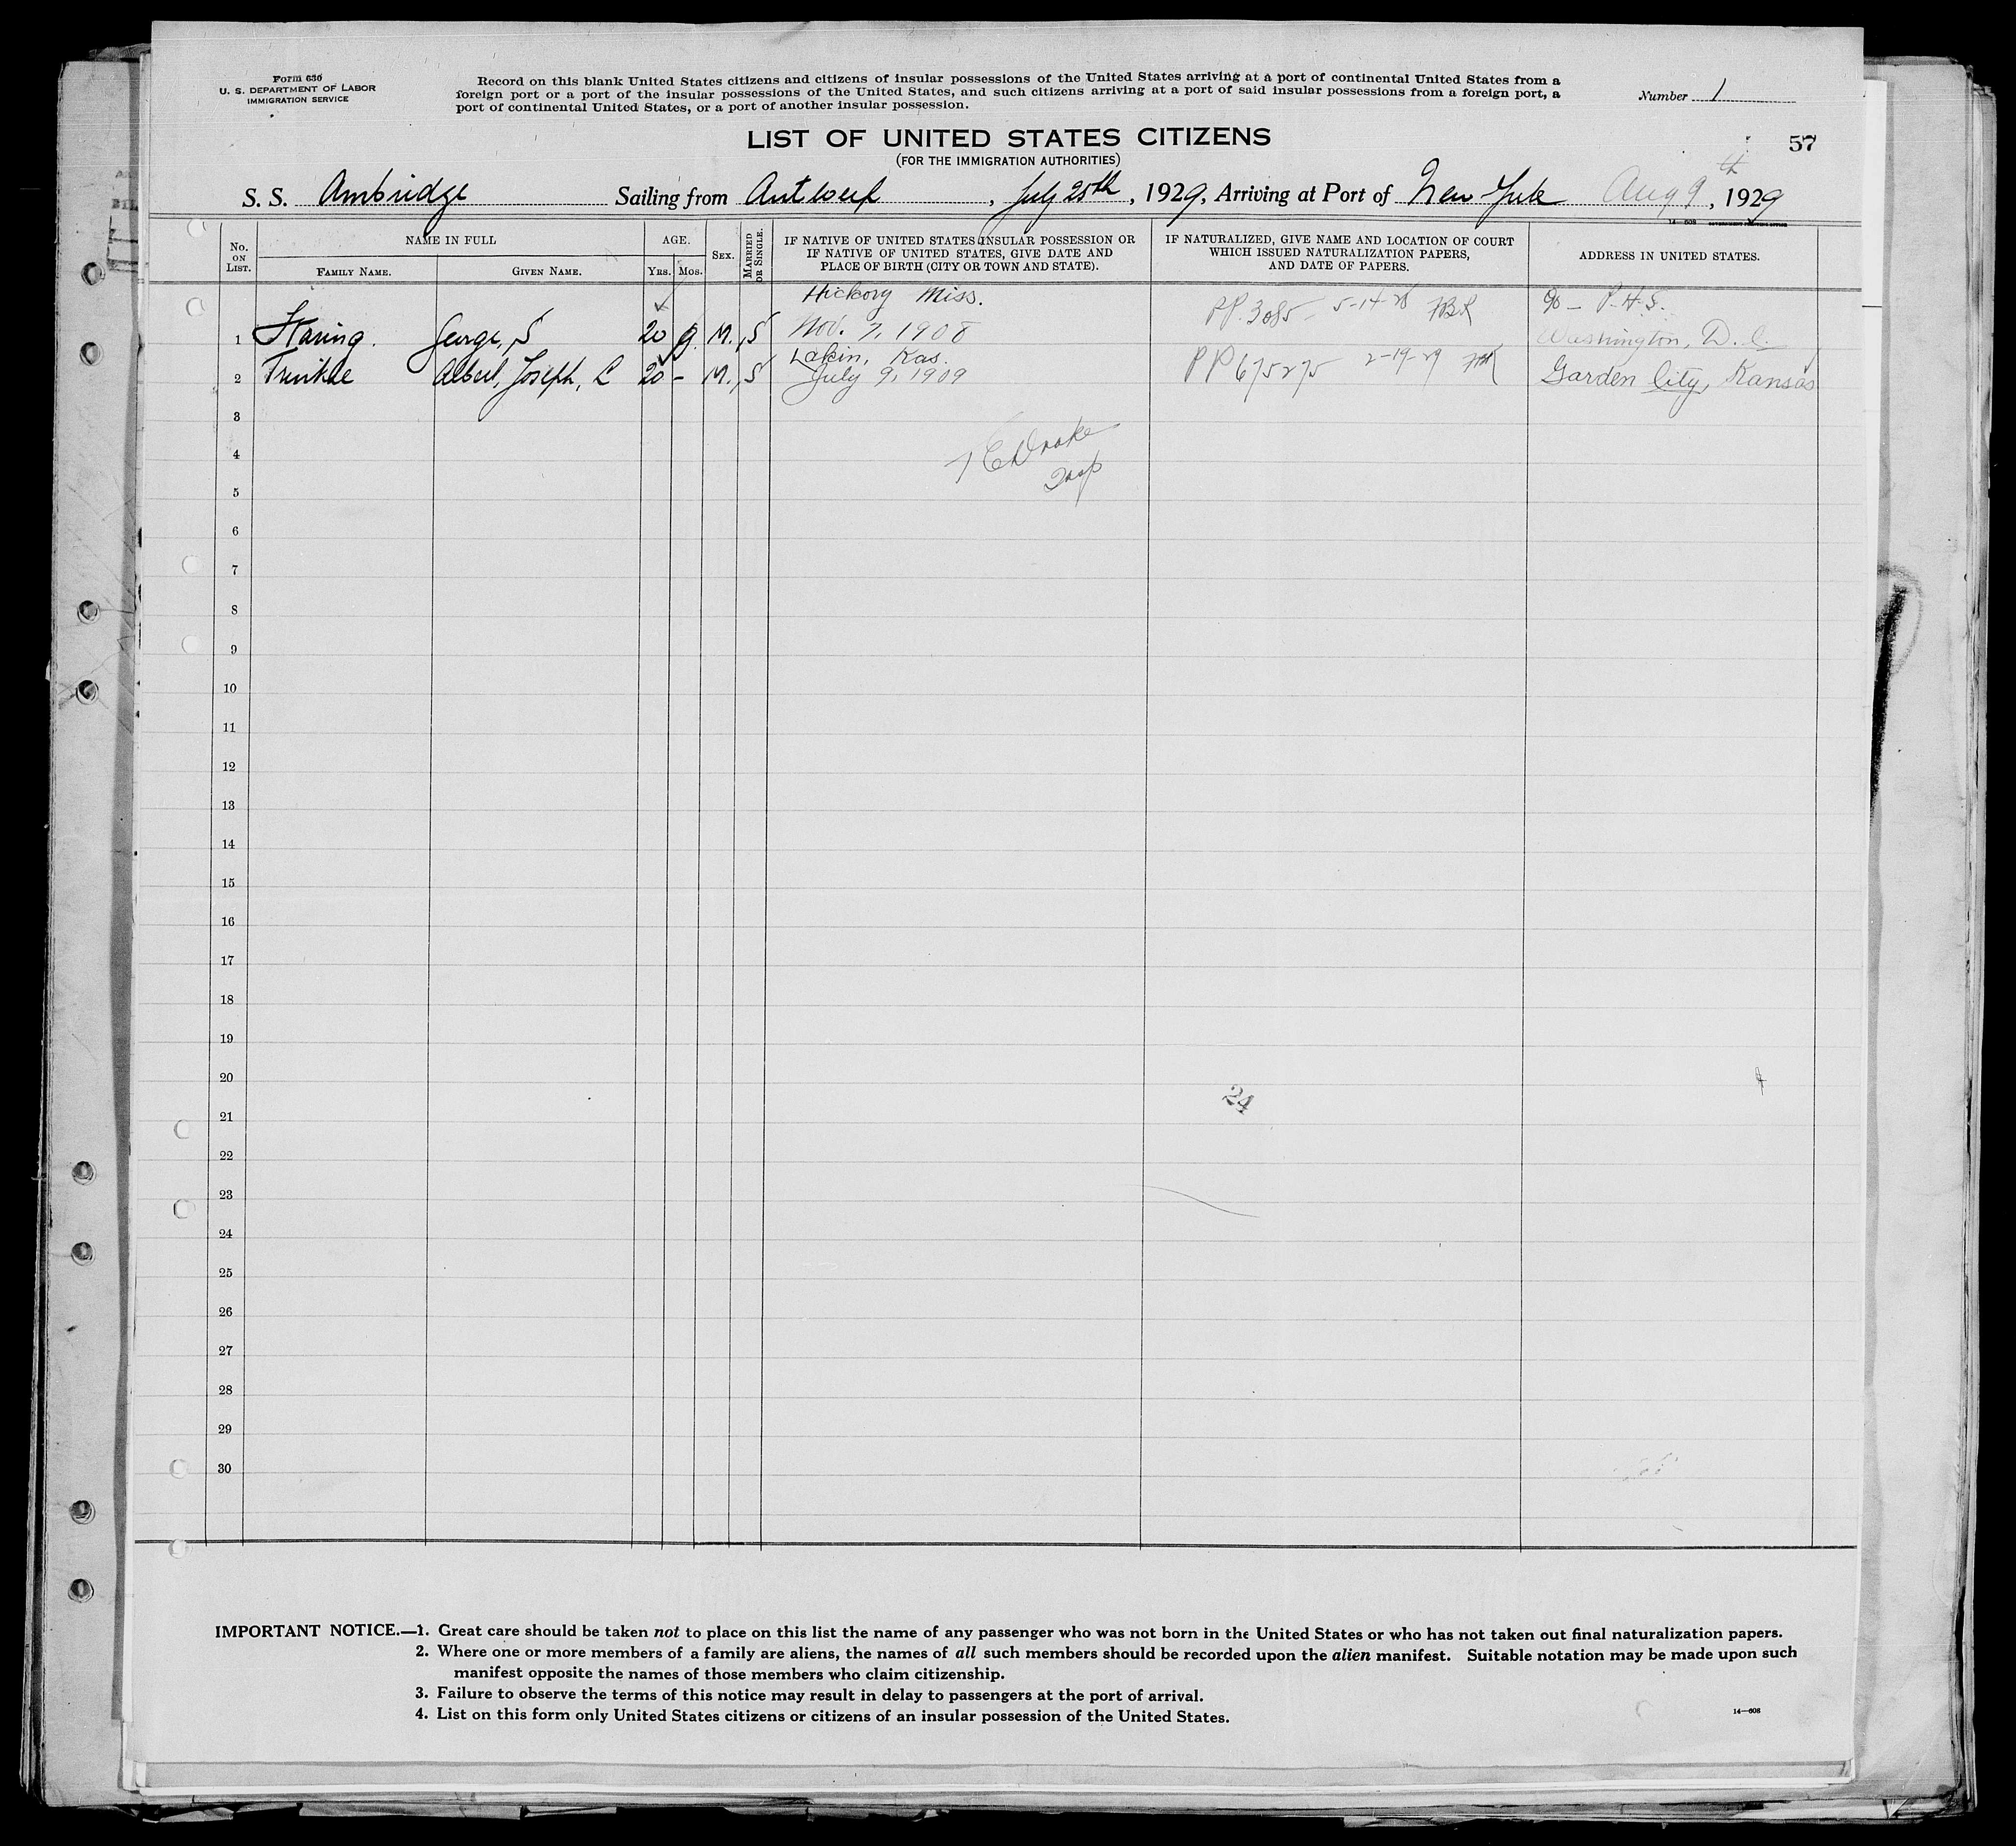 Form 630
U. S. DEPARTMENT OF LABOR
IMMIGRATION SERVICE
Record on this blank United States citizens and citizens of insular possessions of the United States arriving at a port of continental United States from a
foreign port or a port of the insular possessions of the United States, and such citizens arriving at a port of said insular possessions from a foreign port, a
port of continental United States, or a port of another insular possession.
Number 1
57
LIST OF UNITED STATES CITIZENS
(FOR THE IMMIGRATION AUTHORITIES)
S. S. Ambridge Sailing from Antwerp, July 25th, 1929, Arriving at Port of New York Aug 9th, 1929
14—608
No. ON LIST.
NAME IN FULL
FAMILY NAME.
GIVEN NAME.
AGE.
YRS. MOS.
SEX.
MARRIED OR SINGLE.
IF NATIVE OF UNITED STATES INSULAR POSSESSION OR
IF NATIVE OF UNITED STATES, GIVE DATE AND
PLACE OF BIRTH (CITY OR TOWN AND STATE).
IF NATURALIZED, GIVE NAME AND LOCATION OF COURT
WHICH ISSUED NATURALIZATION PAPERS,
AND DATE OF PAPERS.
ADDRESS IN UNITED STATES.
Hickory Miss. PP. 3085 - 5-14-28 % - P.H.S.
1 George, S 20 9. M. S Nov. 7, 1908 Washington, D.C.
Lakin, Kas. PP 675275 2-19-29
2 Trinkle Albert, Joseph, L 20 - M. S July 9, 1909 Garden City, Kansas
3
Drake
4
Insp
5
6
7
8
9
10
11
12
13
14
15
16
17
18
19
20
24
21
22
23
24
25
26
27
28
29
30
IMPORTANT NOTICE.—1. Great care should be taken not to place on this list the name of any passenger who was not born in the United States or who has not taken out final naturalization papers.
2. Where one or more members of a family are aliens, the names of all such members should be recorded upon the alien manifest. Suitable notation may be made upon such
manifest opposite the names of those members who claim citizenship.
3. Failure to observe the terms of this notice may result in delay to passengers at the port of arrival.
4. List on this form only United States citizens or citizens of an insular possession of the United States.
14—608